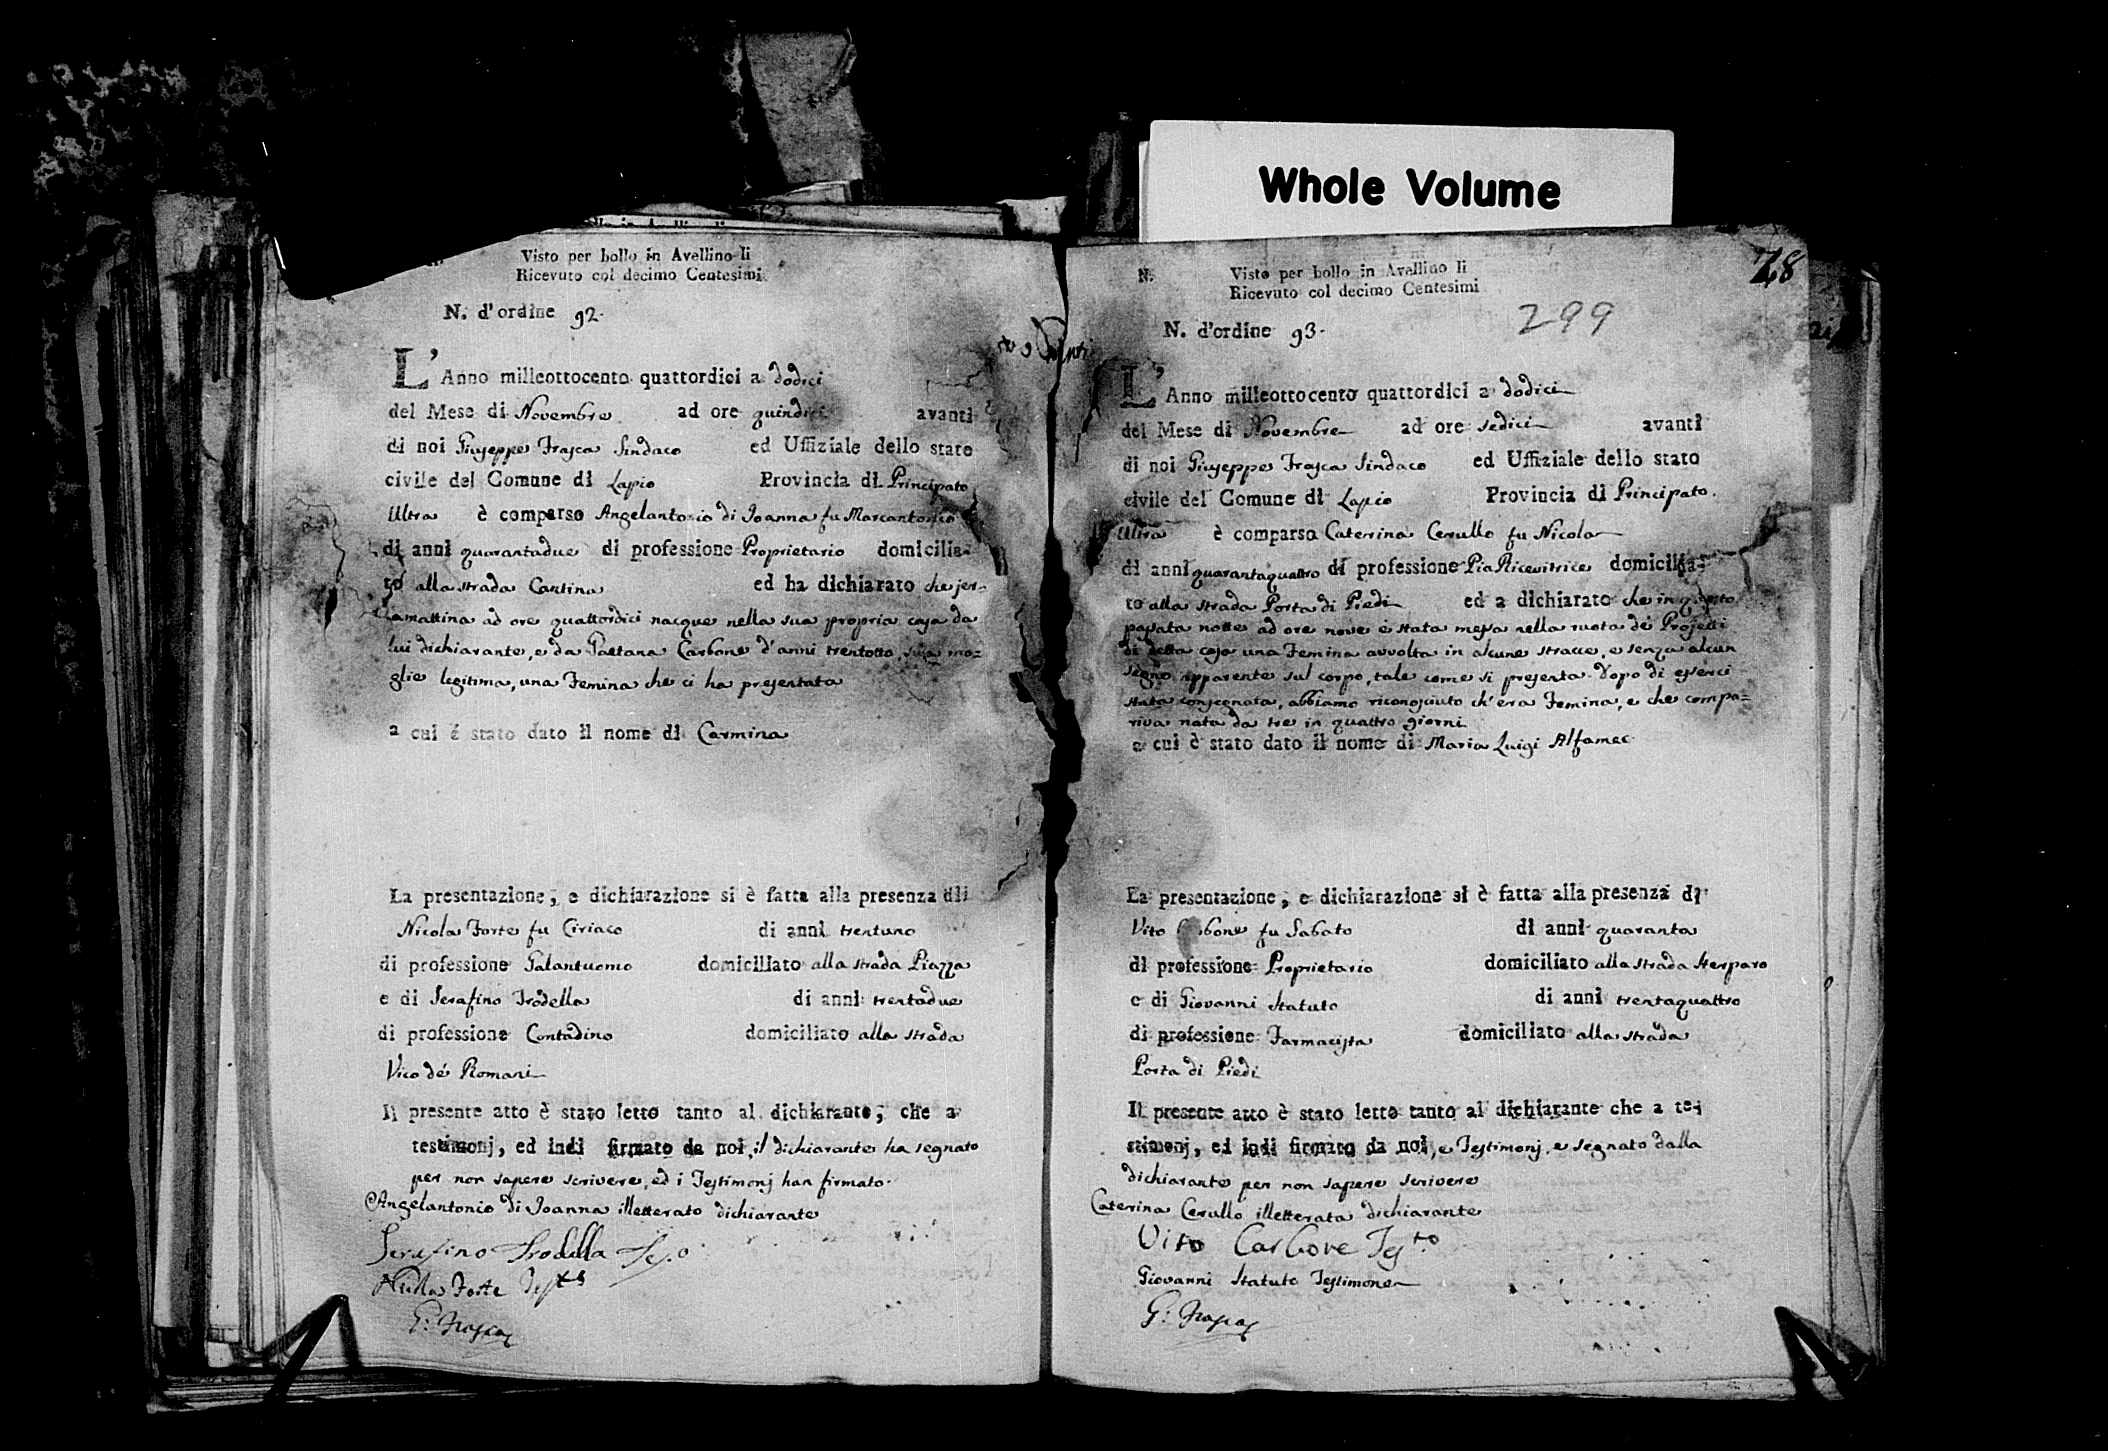 Whole Volume
Visto per bollo in Avellino li
Ricevuto col decimo Centesimi
N. d'ordine 92.
L'Anno milleottocento quattordici a dodici
del Mese di Novembre ad ore quindici avanti
di noi Giuseppe Frasca Sindaco ed Uffiziale dello stato
civile del Comune di Lapio Provincia di Principato
Ultra è comparso Angelantonio di Joanna fu Marcantonio
di anni quarantadue di professione Proprietario domicilia-
to alla strada Cantina ed ha dichiarato che jer
lamattina ad ore quattordici nacque nella sua propria casa da
lui dichiarante, e da Gaetana Carbone d'anni trentotto, sua mo=
glie legitima, una Femina che ci ha presentata
a cui è stato dato il nome di Carmina
La presentazione, e dichiarazione si è fatta alla presenza di
Nicola Forte fu Ciriaco di anni trentuno
di professione Galantuomo domiciliato alla strada Piazza
e di Serafino Trodella di anni trentadue
di professione Contadino domiciliato alla strada
Vico de' Romani
Il presente atto è stato letto tanto al dichiarante, che a
testimonj, ed indi firmato da noi, il dichiarante ha segnato
per non sapere scrivere, ed i Testimonj han firmato.
Angelantonio di Joanna illetterato dichiarante
Serafino Trodella
Nicola Forte
G: Frasca
28
N. Visto per bollo in Avellino li
Ricevuto col decimo Centesimi
299
N. d'ordine 93.
L'Anno milleottocento quattordici a dodici
del Mese di Novembre ad ore sedici avanti
di noi Giuseppe Frasca Sindaco ed Uffiziale dello stato
civile del Comune di Lapio Provincia di Principato
Ultra è comparsa Caterina Cerullo fu Nicola
di anni quarantaquattro di professione Pia Ricevitrice domicilia-
to alla strada Porta di Piedi ed a dichiarato che in questa
passata notte ad ore nove è stata messa nella ruota de' Projetti
di detta casa una Femina avvolta in alcune stracce, e senza alcun
segno apparente sul corpo, tale come si presenta. Dopo di esserci
stata consegnata, abbiamo riconosciuto ch'era Femina, e che compa=
riva nata da tre in quattro giorni
a cui è stato dato il nome di Maria Luigi
La presentazione, e dichiarazione si è fatta alla presenza di
Vito Carbone fu Sabato di anni quaranta
di professione Proprietario domiciliato alla strada
e di Giovanni Statuto di anni trentaquattro
di professione Farmacista domiciliato alla strada
Porta di Piedi
Il presente atto è stato letto tanto al dichiarante che a te-
stimonj, ed indi firmato da noi, e Testimonj, e segnato dalla
dichiarante per non sapere scrivere
Caterina Cerullo illetterata dichiarante
Vito Carbone Testo
Giovanni Statuto Testimone
G: Frasca